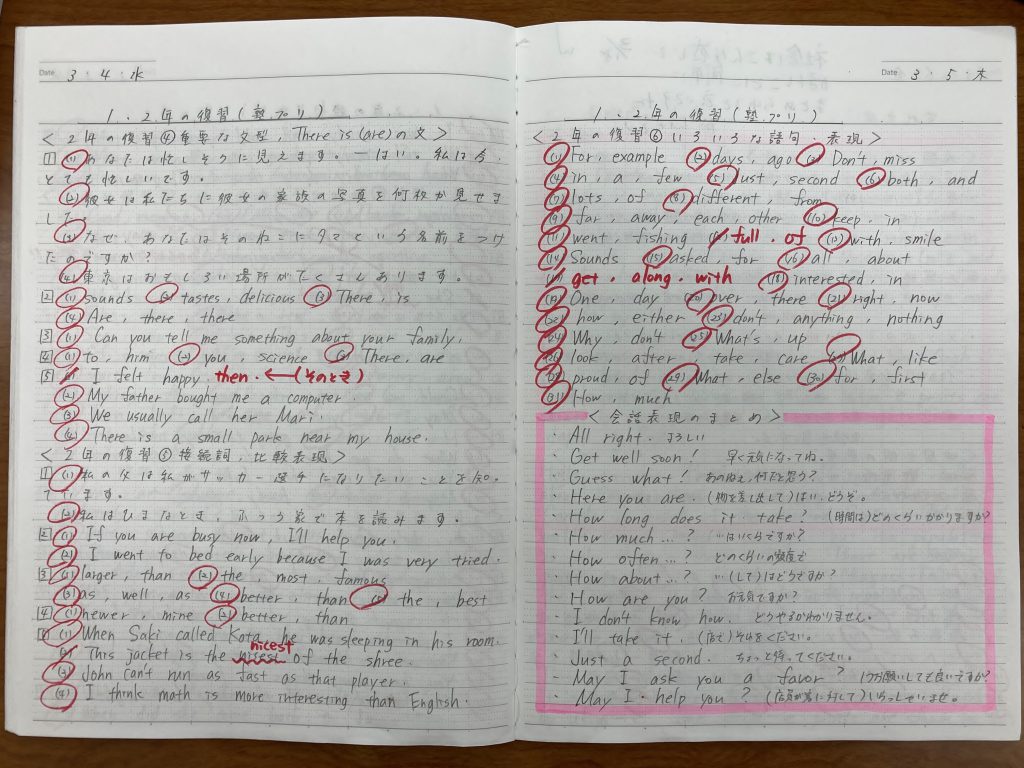 Date 3・4・水
1、2年の復習(塾プリ)
<2年の復習④重要な文型, There is (are)の文>
1 (1)あなたは忙しそうに見えます。ーはい。私は今、
とても忙しいです。
(2)彼女は私たちに彼女の家族の写真を何枚か見せま
した。
(3)なぜ、あなたはそのねこにタマという名前をつけ
たのですか?
(4)東京はおもしろい場所がたくさんあります。
2 (1) sounds (2) tastes, delicious (3) There, is
(4) Are, there, there
3 (1) Can you tell me something about your family.
4 (1) to, him (2) you, science (3) There, are
5 (1) I felt happy then. ←(そのとき)
(2) My father bought me a computer.
(3) We usually call her Mari.
(4) There is a small park near my house.
<2年の復習⑤接続詞, 比較表現>
1 (1)私の父は私がサッカー選手になりたいことを知っ
ています。
(2)私はひまなとき、ふつう家で本を読みます。
2 (1) If you are busy now, I'll help you.
(2) I went to bed early because I was very tried.
3 (1) larger, than (2) the, most, famous
(3) as, well, as (4) better, than (5) the, best
4 (1) newer, mine (2) better, than
(1) When Saki called Kota, he was sleeping in his room.
nicest
(2) This jacket is the of the shree.
(3) John can't run as fast as that player.
(4) I think math is more interesting than English.
Date 3・5・木
1、2年の復習(塾プリ)
<2年の復習⑥いろいろな語句・表現>
(1) For, example (2) days, ago (3) Don't, miss
(4) in, a, few (5) Just, second (6) both, and
(7) lots, of (8) different, from
(9) far, away, each, other (10) keep, in
(11) went, fishing (12) full, of (13) with, smile
(14) Sounds (15) asked, for (16) all, about
(17) get, along, with (18) interested, in
(19) One, day (20) over, there (21) right, now
(22) how, either (23) don't, anything, nothing
(24) Why, don't (25) What's, up
(26) look, after, take, care (27) What, like
(28) proud, of (29) What, else (30) for, first
(31) How, much
<会話表現のまとめ>
・All right. よろしい
・Get well soon! 早く元気になってね。
・Guess what! あのねえ、何だと思う?
・Here you are. (物を差し出して)はい、どうぞ。
・How long does it take? (時間は)どのくらいかかりますか?
・How much…? …はいくらですか?
・How often…? どのくらいの頻度で
・How about…? …(して)はどうですか?
・How are you? お元気ですか?
・I don't know how. どうやるかわかりません。
・I'll take it. (店で)それをください。
・Just a second. ちょっと待ってください。
・May I ask you a favor? 1つお願いしても良いですか?
・May I help you? (店員が客に対して)いらっしゃいませ。